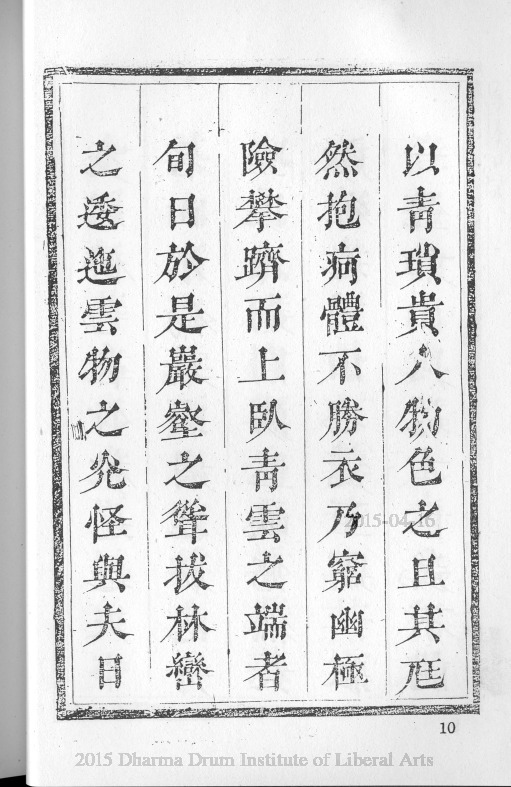 以青瑣貴人物色之且其尫
然抱病體不勝衣乃窮幽極
險攀躋而上臥青雲之端者
旬日於是巖壑之聳拔林巒
之逶迤雲物之恠與夫日
2015-04-16
10
2015 Dharma Drum Institute of Liberal Arts